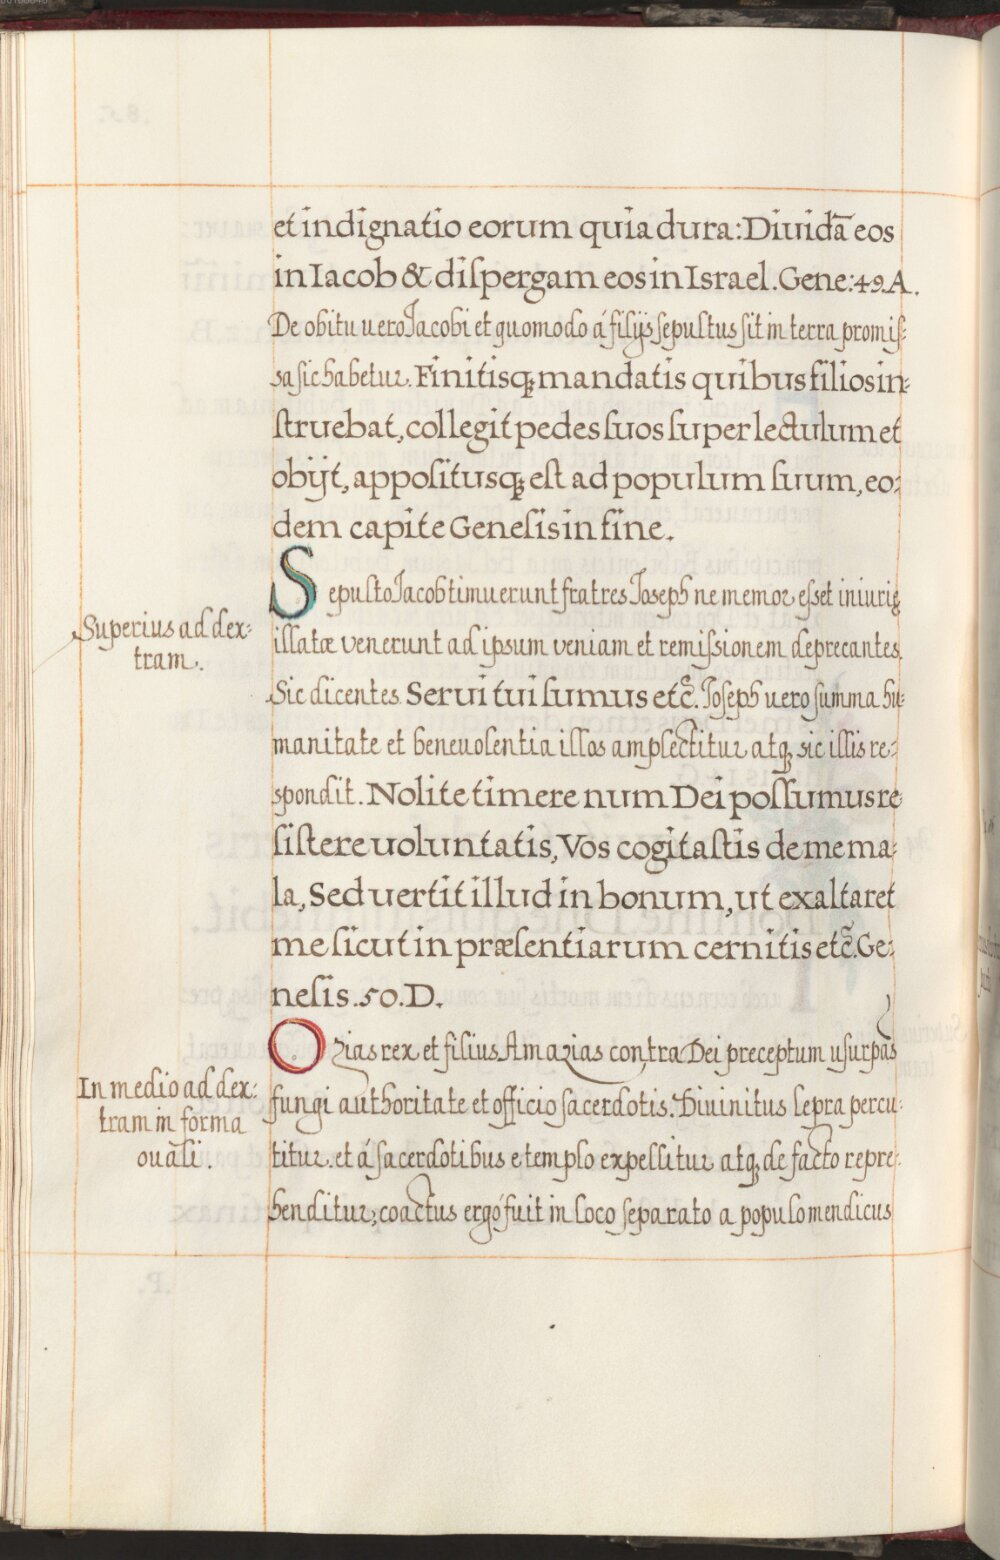 et indignatio eorum quia dura: Diuidā eos
in Iacob & diſpergam eos in Israel. Gene: 49. A.
De obitu uero Jacobi et quomodo á filijs sepultus ſit in terra promiſ-
sa sic habetur. Finitisq; mandatis quibus filios in-
ſtruebat, collegit pedes ſuos ſuper lectulum et
obijt, appoſitusq; eſt ad populum ſuum, eo-
dem capite Geneſis in fine.
Superius ad dex-
tram.
Sepulto Jacob timuerunt fratres Joseph ne memor eſset iniurię
illatæ venerunt ad ipsum veniam et remiſsionem deprecantes.
Sic dicentes Serui tui ſumus etc̃. Joſeph uero ſumma hu-
manitate et beneuolentia illos amplectitur atq; sic illis re-
spondit. Nolite timere num Dei poſſumus re
ſiſtere uoluntatis, Vos cogitaſtis de me ma-
la, Sed vertit illud in bonum, ut exaltaret
me ſicut in præſentiarum cernitis etc̃. Ge-
neſis. 50. D.
In medio ad dex-
tram in forma
ouāli.
Ozias rex et filius Amazias contra Dei preceptum uſurpās
fungi authoritate et officio ſacerdotis. Diuinitus lepra percu-
titur. et á ſacerdotibus e templo expellitur atq; de facto repre-
henditur; coactus ergo fuit in loco ſeparato a populo mendicus